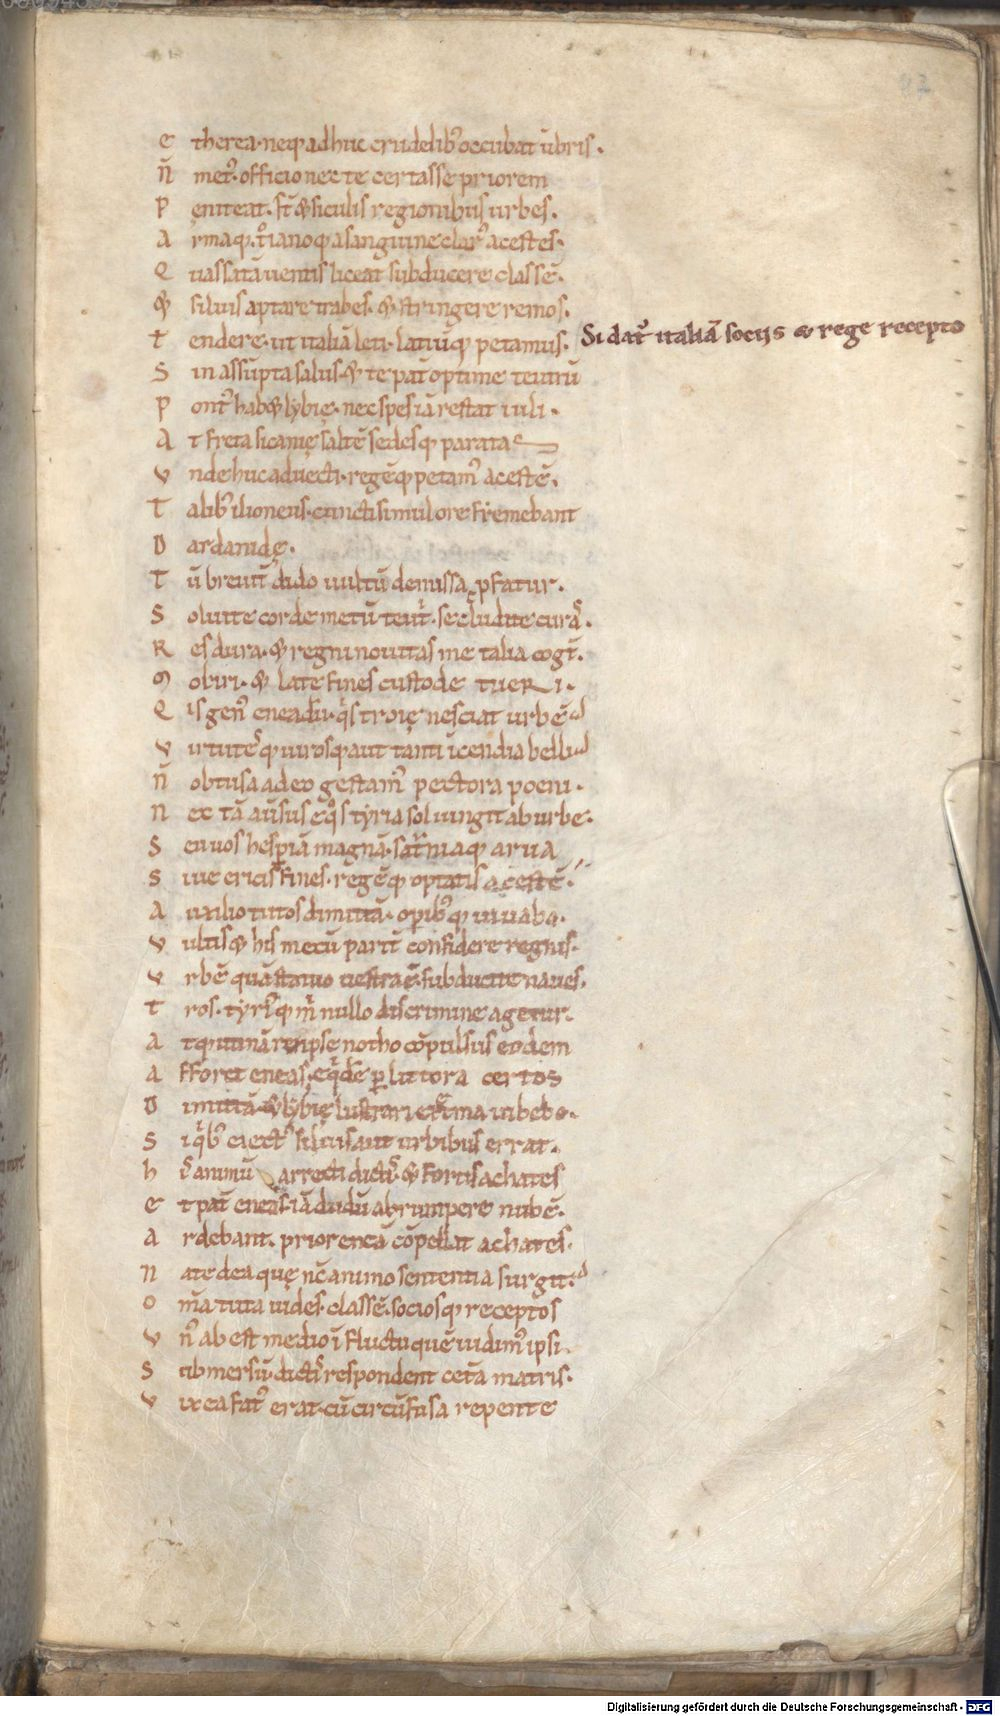 47
E therea· neq; adhuc crudelib; occubat ūbris.
N̄ met᷒· officio nec te certasse priorem
P eniteat. st̄ & siculis regionibus urbes.
A rmaq; t°ianoq; a sanguine clar᷒ acestes·
Q uassatā uentis liceat subducere classē.
& siluis aptare trabes. & stringere remos.
T endere· ut italiā leti· latiūq; petamus. Si dat᷒ italiā socijs & rege recepto
S in assūpta salus· & te pat̄ optime teucrū
P ont᷒ hab& lybię· nec spes iā restat iuli·
A t freta sicanię saltē sedesq; parata
V nde huc aduecti· regēq; petam᷒ acestē.
T alib; ilioneus· cuncti simul ore fremebant
D ardanidę.
T ū breuit̄ dido uultū demissa pfatur.
S oluite corde metū teucͥ· secludite curas.
R es dura· & regni nouitas me talia cogt̄.
M oliri· & late fines custode tueri.
Q is gen᷒ eneadū· qͥs troię nesciat urbē
V irtutesq; uirosq; aut tanti īcendia belli
N̄ obtusa adeo gestam᷒ pectora poeni·
N ec tā auersus eqͦs tyria sol iungit ab urbe·
S eu uos hespiā magnā· satͬniaq; arua
S iue ericis fines· regēq; optatis acestē·
A uxilio tutos dimittā· opib;q; iuuabo.
V ultis & his mecū parit̄ considere regnis·
V rbē quā statuo uestra ē· subducite naues.
T ros· tyriusq; mͥ nullo discrimine agetur.
A tq; utinā rex ipse notho cōpulsus eodem
A fforet eneas. eqͥdē p littora certos
D imittā· & lybię lustrari extͬma iubebo.
S i qͥb; eiect᷒ siluis aut urbibus errat.
H is animū arrecti dictis & fortis achates
E t pat̄ eneas· iā dudū abrumpere nubē.
A rdebant. prior eneā cōpellat achates·
N ate dea quę nc̄ animo sententia surgit·
O m̄a tuta uides· classē· sociosq; receptos
V n᷒ abest medio ī fluctu quē uidim᷒ ipsi.
S ubmersū· dictis respondent cet̄a matris.
V ix ea fat᷒ erat· cū circūfusa repente
Digitalisierung gefördert durch die Deutsche Forschungsgemeinschaft - DFG